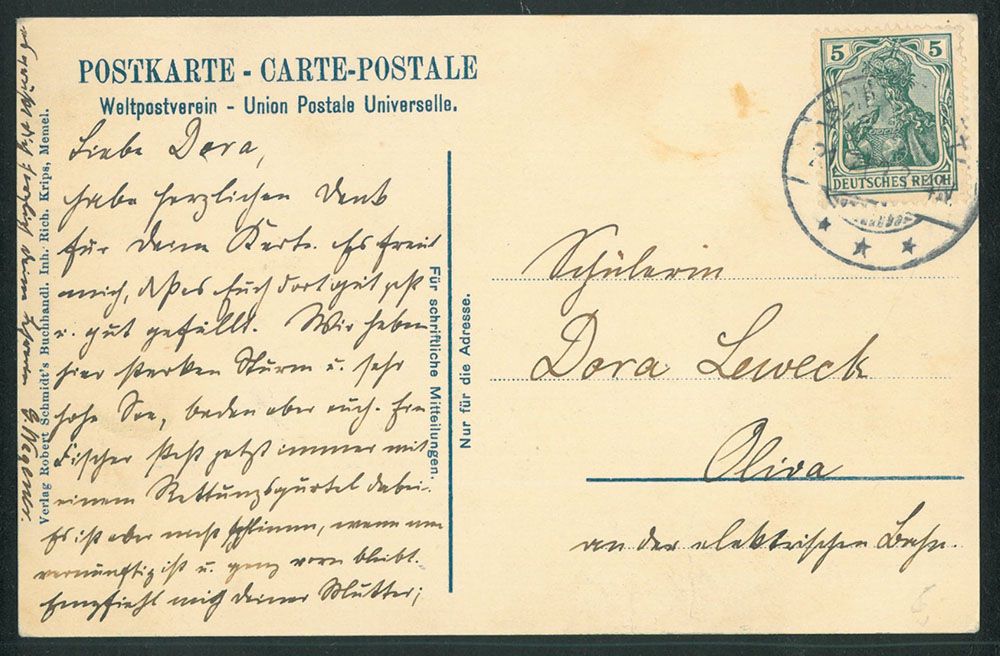 POSTKARTE - CARTE-POSTALE
Weltpostverein - Union Postale Universelle.
Liebe Dora,
habe herzlichen Dank
für deine Karte. Es freut
mich, daß es Euch dort gut paßt
u. gut gefällt. Wir haben
hier starken Sturm u. sehr
hohe See, baden aber auch. Ein
Fischer steht jetzt immer mit
einem Rettungsgürtel dabei.
Es ist aber nicht schlimm, wenn man
vernünftig ist u. ganz vorn bleibt.
Empfiehl mich deiner Mutter;
Verlag Robert Schmidt's Buchhandl. Inh. Rich. Krips, Memel.
Für schriftliche Mitteilungen.
Nur für die Adresse.
5 5
DEUTSCHES REICH
Schülerin
Dora Leweck
Oliva
an der elektrischen Bahn.